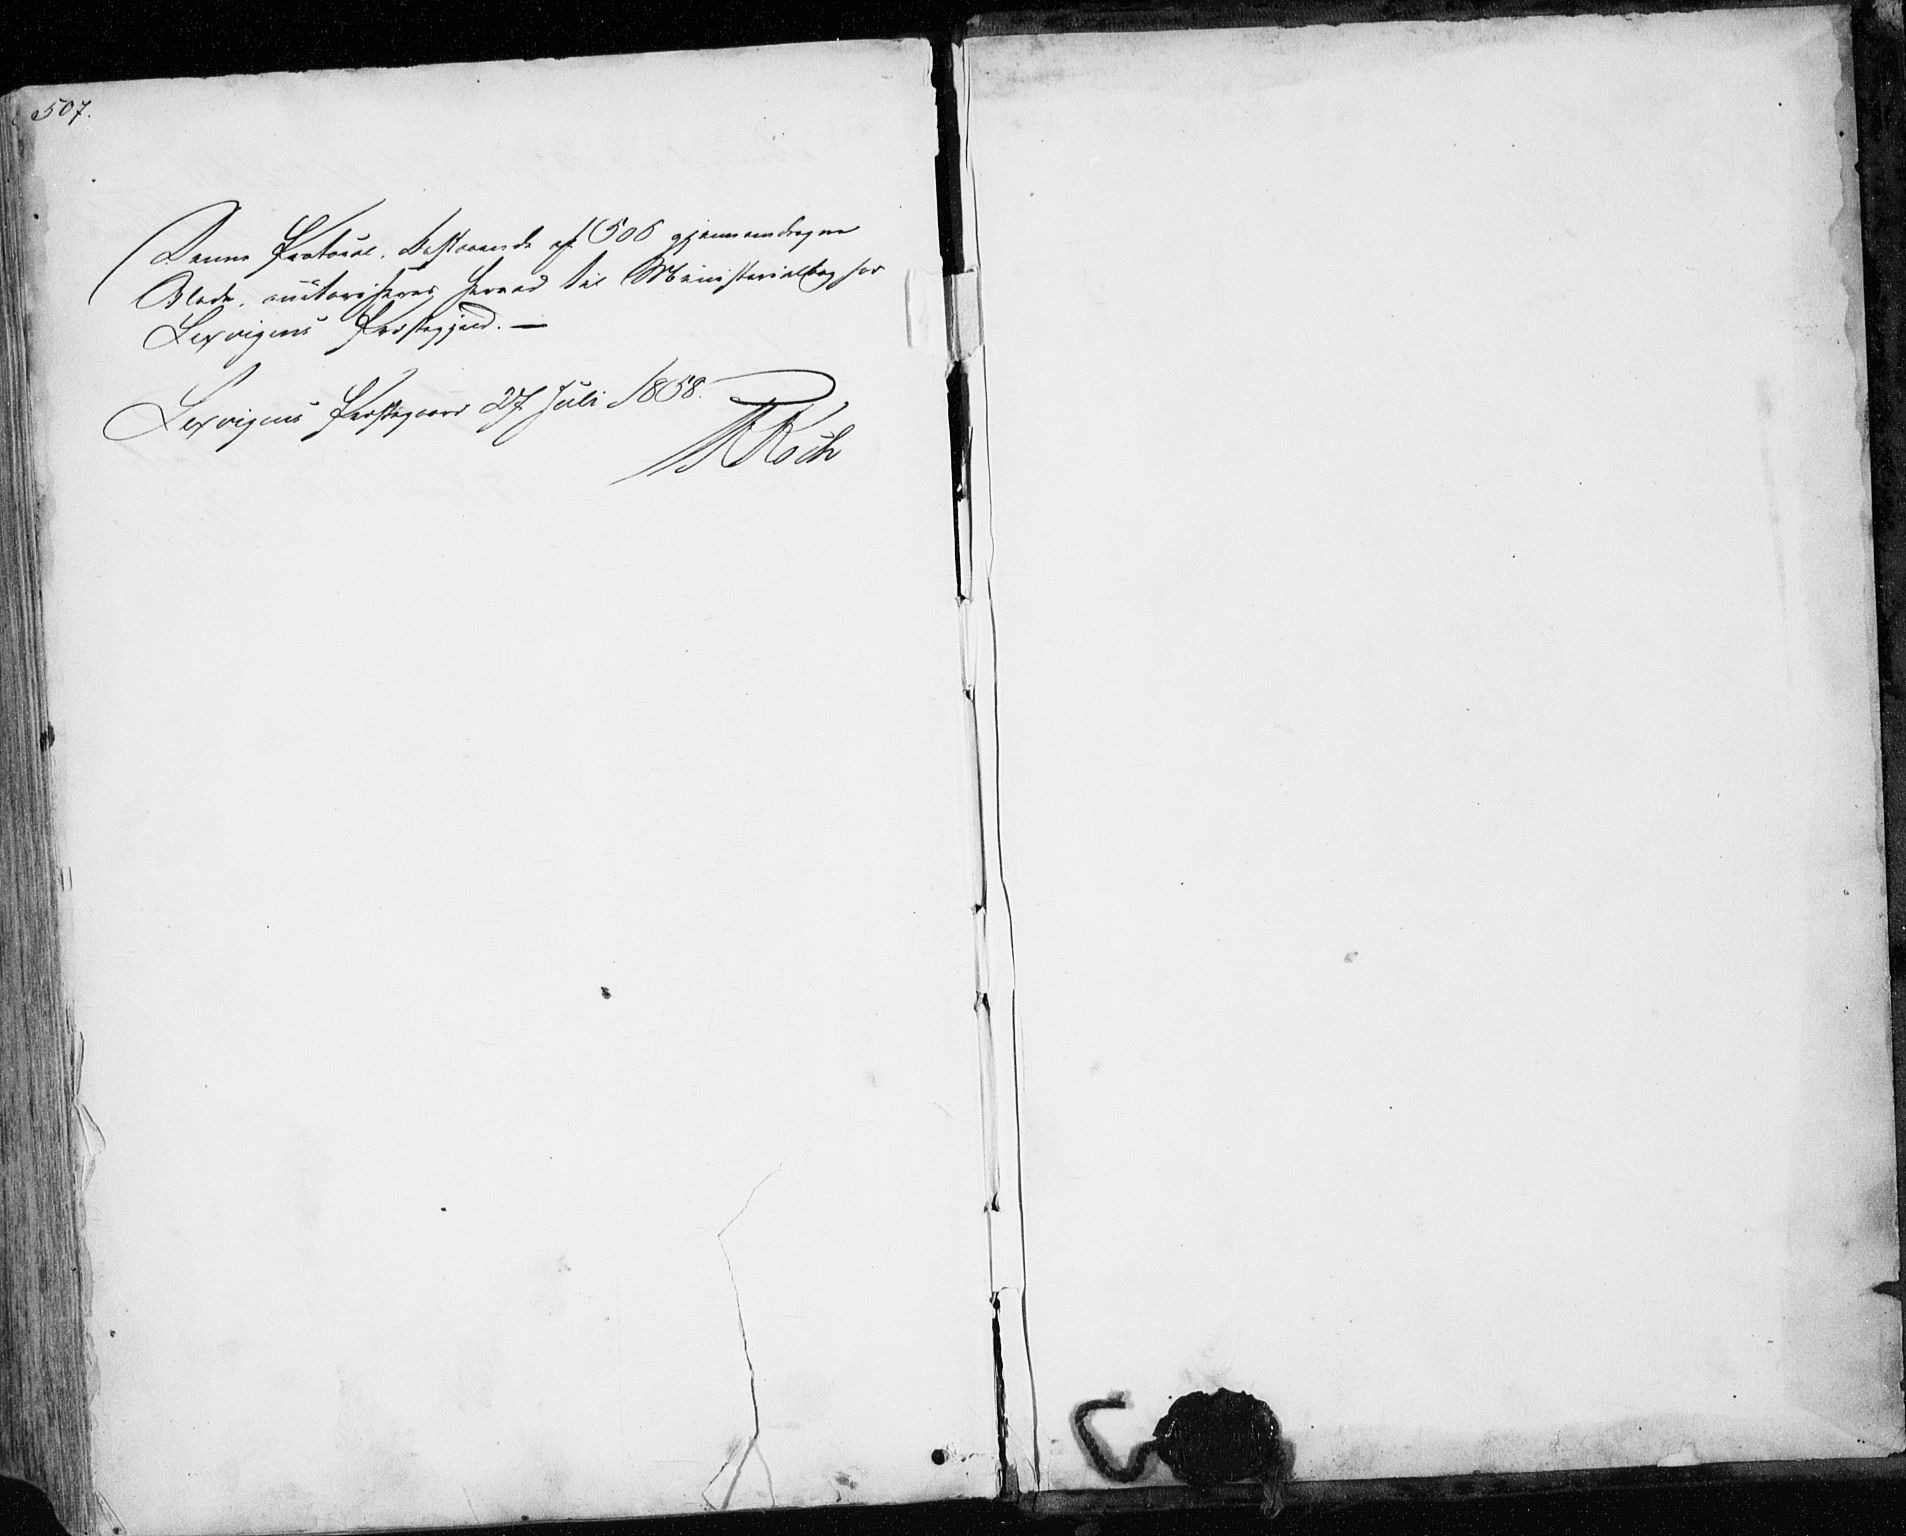 507.
Denne Protocol, bestaaende af 506 gjennemdragne
Blade, autoriseres herved til Ministerialbog for
Lexvigens Præstegjeld. —
Lexvigens Præstegaard 27 Juli 1858.
Koch